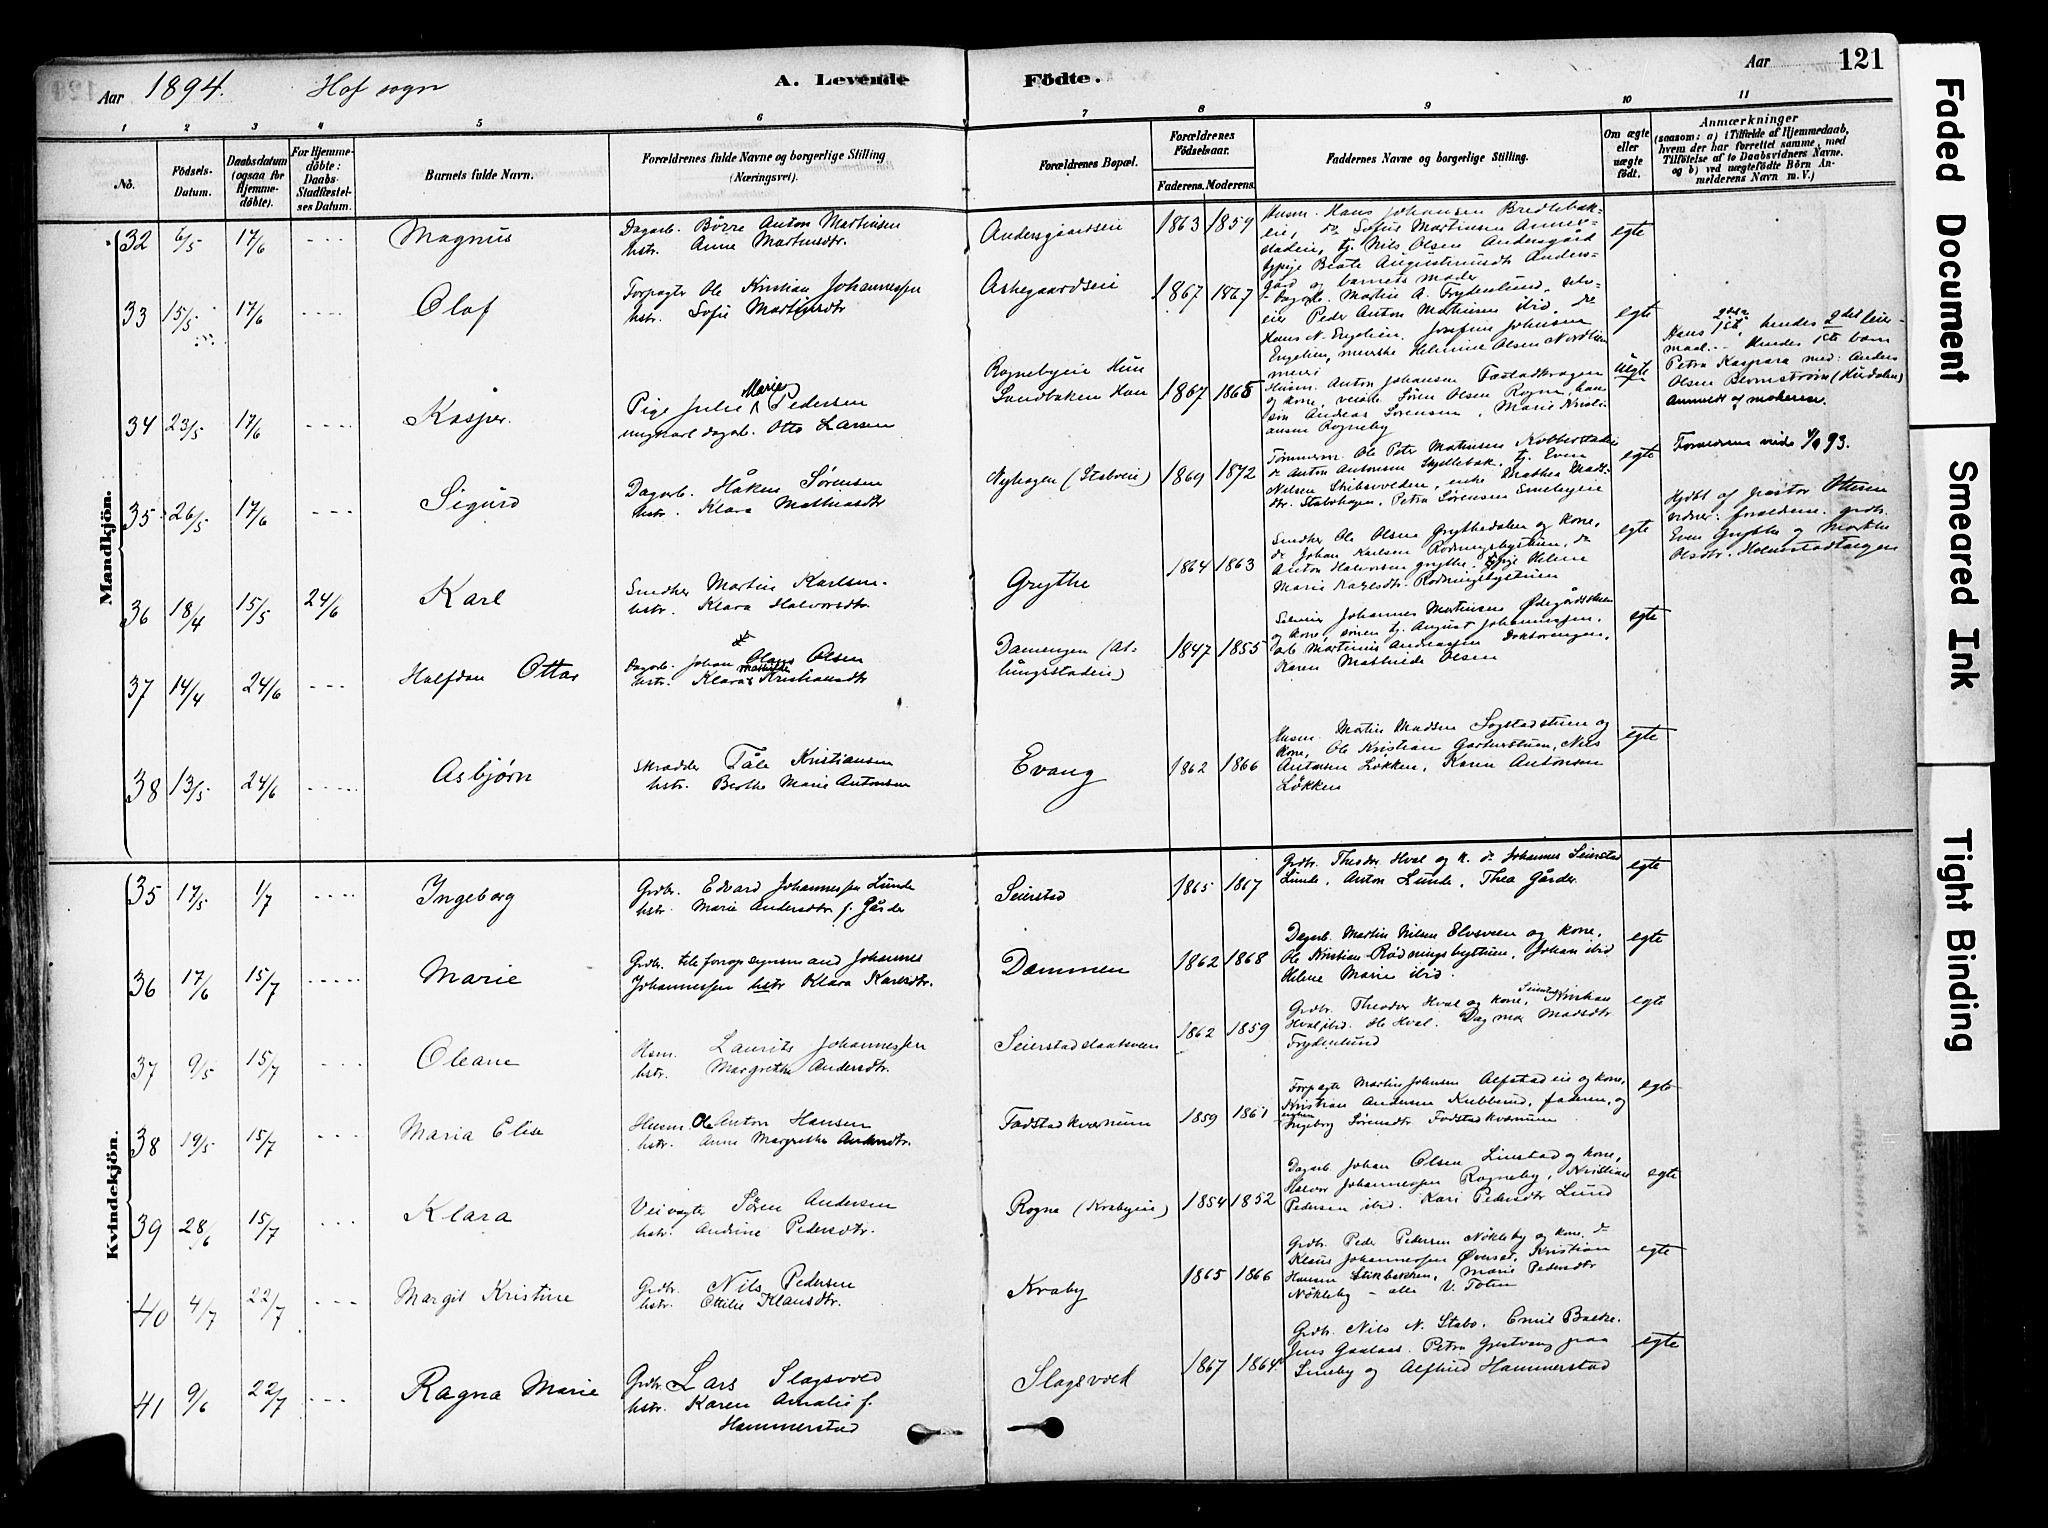 Aar 1894. Hof sogn A. Levende Födte. Aar 121
1 2 3 4 5 6 7 8 9 10 11
No. Födsels-Datum. Daabsdatum (ogsaa for Hjemmedöbte). For Hjemmedöbte: Daabs Stadfæstelses Datum. Barnets fulde Navn. Forældrenes fulde Navne og borgerlige Stilling (Næringsvei). Forældrenes Bopæl. Forældrenes Födselsaar. Faderens. Moderens. Faddernes Navne og borgerlige Stilling. Om ægte eller uægte födt. Anmærkninger (saasom: a) i Tilfælde af Hjemmedaab, hvem der har forrettet samme, med Tilföielse af to Daabsvidners Navne. og b) ved uægtefödte Börn Anmelderens Navn m. V.)
Mandkjön.
32 6/5 17/6 Magnus Dagarb. Börre Anton Martinsen hstr. Anne Martinsdtr. Andersgaardseie 1863 1859 Husm. Hans Johansen Bredlebakeie, do Sofus Martinsen Annerstadeie, tj. Nils Olsen Andersgård tjpige Beate Augustinusdtr Andersgård og barnets moder egte
33 15/5 17/6 Olaf Forpagter Ole Kristian Johannessen hstr. Sofie Martinsdtr Askegaardseie 1867 1867 Dagarb. Martin A. Frydenlund, selveier Peder Anton Mathisen ibid, do Hans N. Engelien. Josefine Johnsen Engelien, meierske Helmine Olsen Nordlien meieri egte
34 23/5 17/6 Kasper. Pige Julie Marie Pedersen ungkarl dagarb. Otto Larsen Rognebyeie Hun Sandbakken Han 1867 1865 Husm. Anton Johansen Fæstadhagen og kone, veivogter Søren Olsen Rogne, hans søn Andreas Sørensen, Marie Kristiansen Rogneby uegte Hans 2det, hendes 2det leiermaal. Hendes 1ste barn Petra Kaspara med: Anders Olsen Bernstrøm (Hurdalen) Anmeldt af moderen.
35 26/5 17/6 Sigurd Dagarb. Håken Sørensen hstr. Klara Mathiasdtr Nyhagen (Staboeie) 1869 1872 Tømmerm. Ole Peter Matinsen Kobberstadeie do Anton Antonsen Skjellebak. tj. Even Nilsen Skibsvedden, enke Drathea Madsdtr. Stabohagen, Petra Sørensen Smebyeie egte Forældrene viede 93.
36 18/4 15/5 24/6 Karl Snedker Martin Karlsen. hstr. Klara Halvorsdtr. Grythe 1864 1863 Snedker Ole Olsen Grythedalen og kone, do Johan Karlsen Rødningsbystuen, do Anton Halvorsen grythe. tjpige Helene Marie Karlsdtr. Rødningsbystuen egte Hjdbt af pastor Ottesen vidner: forældrene. grdbr. Even Grythe og Marthe Olsdtr. Holmstadtangen
37 14/4 24/6 Halfdan Ottar Dagarb. Johan Olaus Olsen hstr. Klara Mathilde Kristiansdtr Damengen (Alfüngstadeie) 1847 1855 Selveier Johannes Martinsen Ødegårdsskoven og kone, sønnen tj. August Johannessen, Ole Martinius Andreassen Doktorengen, Karen Mathilde Olsen egte
38 13/5 24/6 Asbjørn Skrædder Tåle Kristiansen hstr. Berthe Marie Antonsen Evang 1862 1866 Husm. Martin Madsen Sogstadstuen og kone, Ole Kristian Garterstuen, Nils Antonsen Løkken, Karen Antonsen Løkken egte
Kvindekjön.
35 17/5 1/7 Ingeborg Grdbr. Edvard Johannessen Lunde hstr. Marie Andersdtr f. Gårder Seierstad 1865 1867 Grdbr. Theodor Hval og k. do Johannes Seierstad Lunde, Anton Lunde, Thea Gårder. egte
36 17/6 15/7 Marie Grdbr. telefonopsynsmand Johannes Johannessen hstr Klara Karlsdtr. Dammen 1862 1868 Dagarb. Martin Nilsen Elvsveen og kone, Ole Kristian Rødningsbystuen, Johan ibid Helene Marie ibid. egte
37 9/5 15/7 Oleane Husm. Laurits Johannessen hstr. Margrethe Andersdtr. Seierstadslaatsveen 1862 1859 Grdbr. Theodor Hval og kone, Seierstad Kristian Hval ibid. Ole Hval. Dagmar Madsdtr Frydenlund egte
38 19/5 15/7 Maria Elise Husm Ole Anton Hansen hstr. Anne Margrethe Andersdtr. Fodstadkværnum 1859 1861 Forpagter Martin Johnsen Alfstadeie og kone, Kristian Andersen Kubberud, faderen, og Ingeborg Sørensdtr Fodstadkværnum egte
39 28/6 15/7 Klara Veivogter Sören Andersen hstr. Andrine Pedersdtr. Rogna (Krabyeie) 1854 1852 Dagarb Johan Olsen Linstad og kone, Halvor Johannessen Rogneby, Kristian Pedersen ibid. Kari Pedersdtr Lund egte
40 4/7 22/7 Margit Kristine Grdbr. Nils Pedersen hstr. Ottilie Klausdtr. Kraby 1865 1866 Grdbr. Peder Pedersen Nökleby og kone. do Klaus Johannessen Øverset, Kristian Hansen Stikbakken, Marie Pedersdtr Nökleby – alle V. Toten egte
41 9/6 22/7 Ragna Marie Grdbr. Lars Slagsvold hstr. Karen Amalie f. Hammerstad Slagsvold 1867 1864 Grdbr. Nils N. Stabo. Emil Bakke. Jens Gaalaas. Petra Grestvang paa Smeby og Alfhild Hammerstad egte
Faded Document
Smeared Ink
Tight Binding